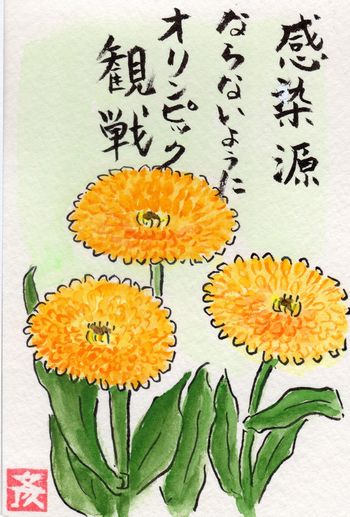 感染源
ならないように
オリンピック
観戦